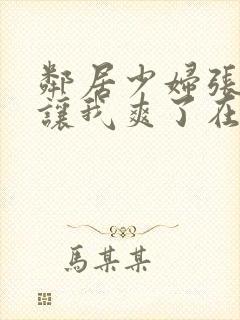 鄰居少婦張
讓我爽了在
馬某某